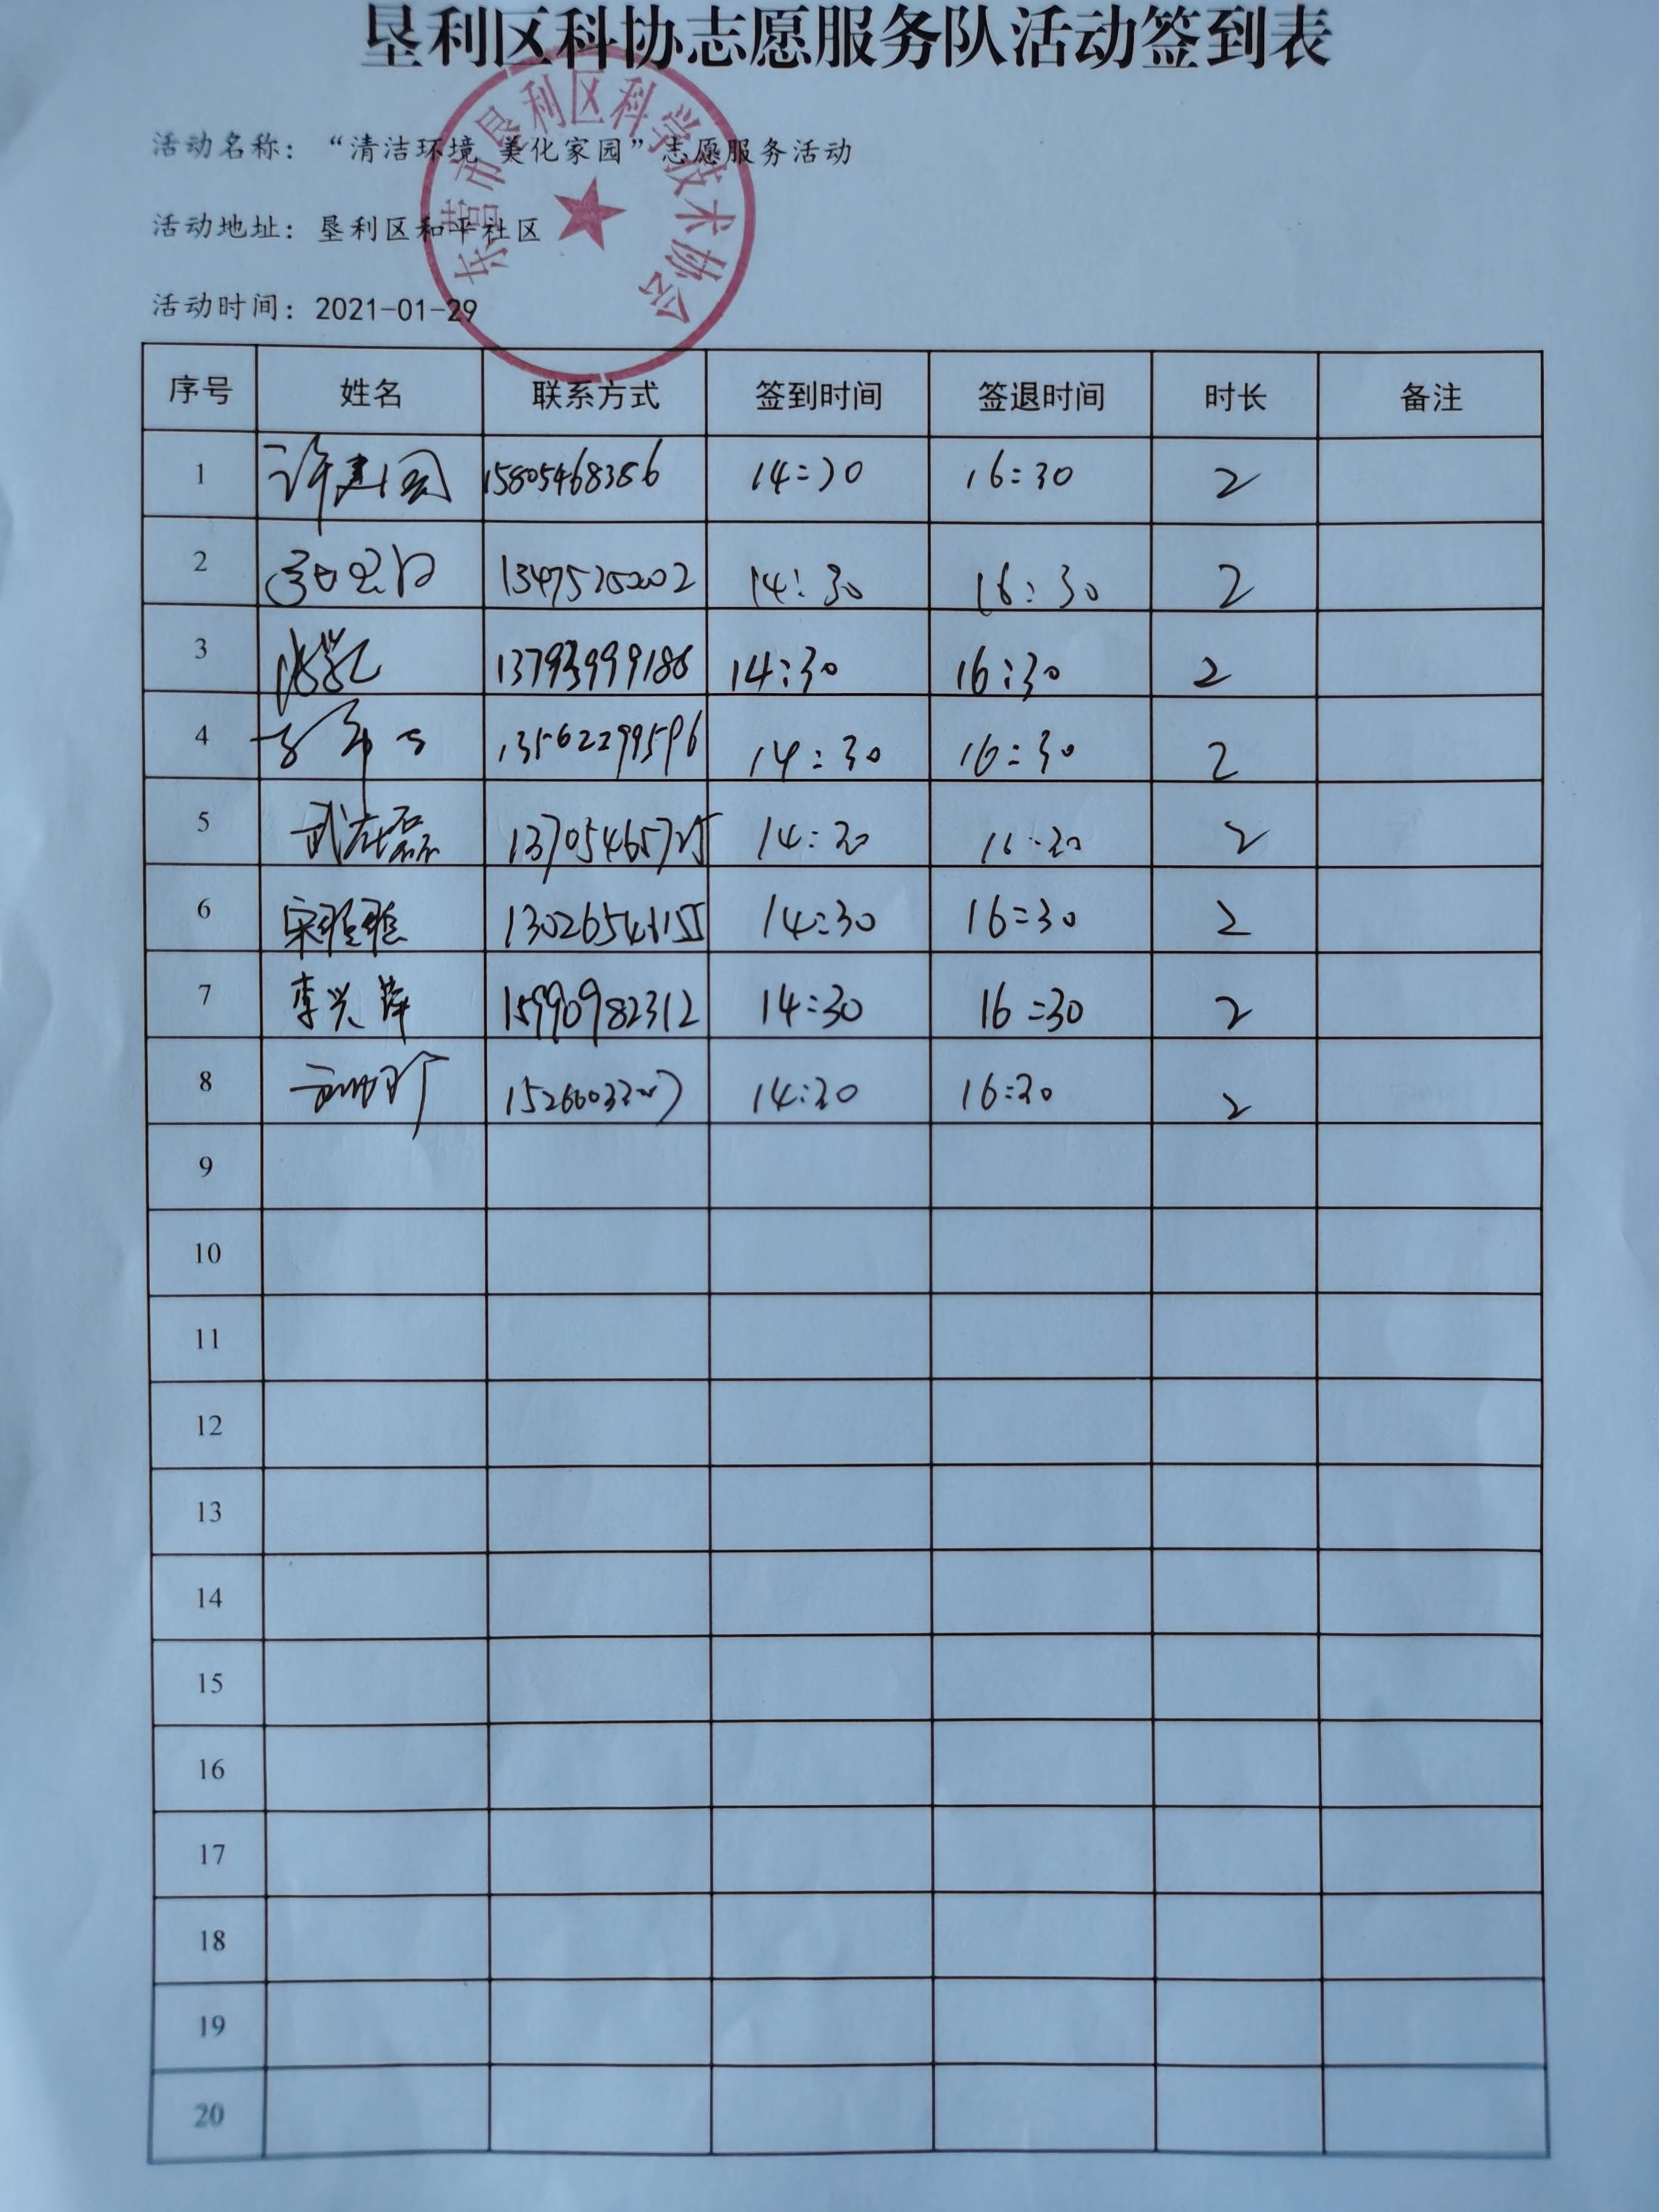 垦利区科协志愿服务队活动签到表
东营市垦利区科学技术协会
活动名称：“清洁环境 美化家园”志愿服务活动
活动地址：垦利区和平社区
活动时间：2021-01-29
序号 姓名 联系方式 签到时间 签退时间 时长 备注
1 许建国 15805468386 14:30 16:30 2
2 14:30 16:30 2
3 13793999188 14:30 16:30 2
4 13562299596 14:30 16:30 2
5 武在磊 14:30 16:30 2
6 宋雅雅 14:30 16:30 2
7 李兴萍 15990982312 14:30 16:30 2
8 14:30 16:30 2
9
10
11
12
13
14
15
16
17
18
19
20